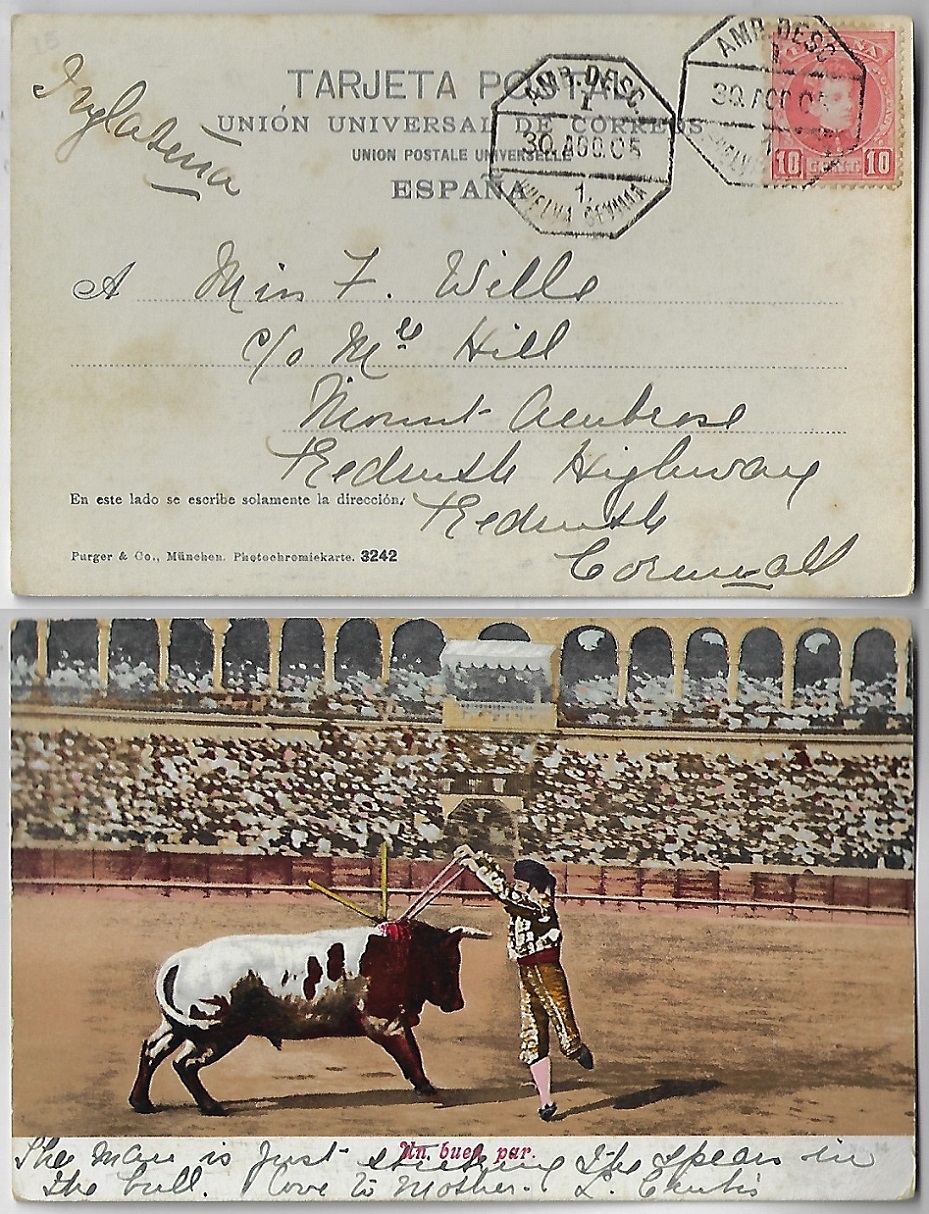 15
Inglaterra
TARJETA POSTAL
UNIÓN UNIVERSAL DE CORREOS
UNION POSTALE UNIVERSELLE
ESPAÑA
AMB. DESC.
1
30 AGO 05
1.
HUELVA SEVILLA
AMB. DESC.
1
30 AGO 05
HUELVA
ESPAÑA
10 10
A Miss F. Wills
c/o Mrs Hill
Mount Ambrose
Redruth Highway
Redruth
Cornwall
En este lado se escribe solamente la dirección.
Purger & Co., München. Photochromiekarte. 3242
Un buen par.
The Man is just sticking the spears in
the bull. Love to Mother. L.